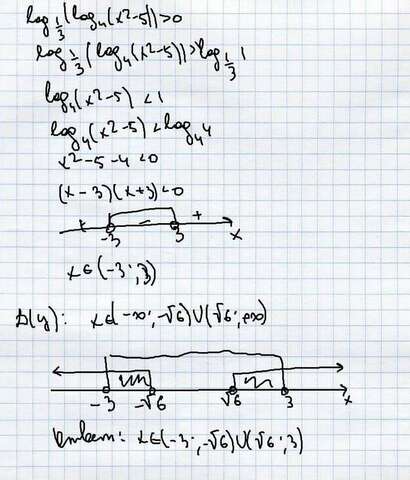 log 1/3 (log₄(x²-5))>0
log 1/3 (log₄(x²-5))>log 1/3 1
log₄(x²-5)<1
log₄(x²-5)<log₄4
x²-5-4<0
(x-3)(x+3)<0
+ - +
-3 3 x
x∈(-3;3)
D(y): x∈(-∞;-√6)∪(√6;+∞)
-3 -√6 √6 3 x
Ответ: x∈(-3;-√6)∪(√6;3)